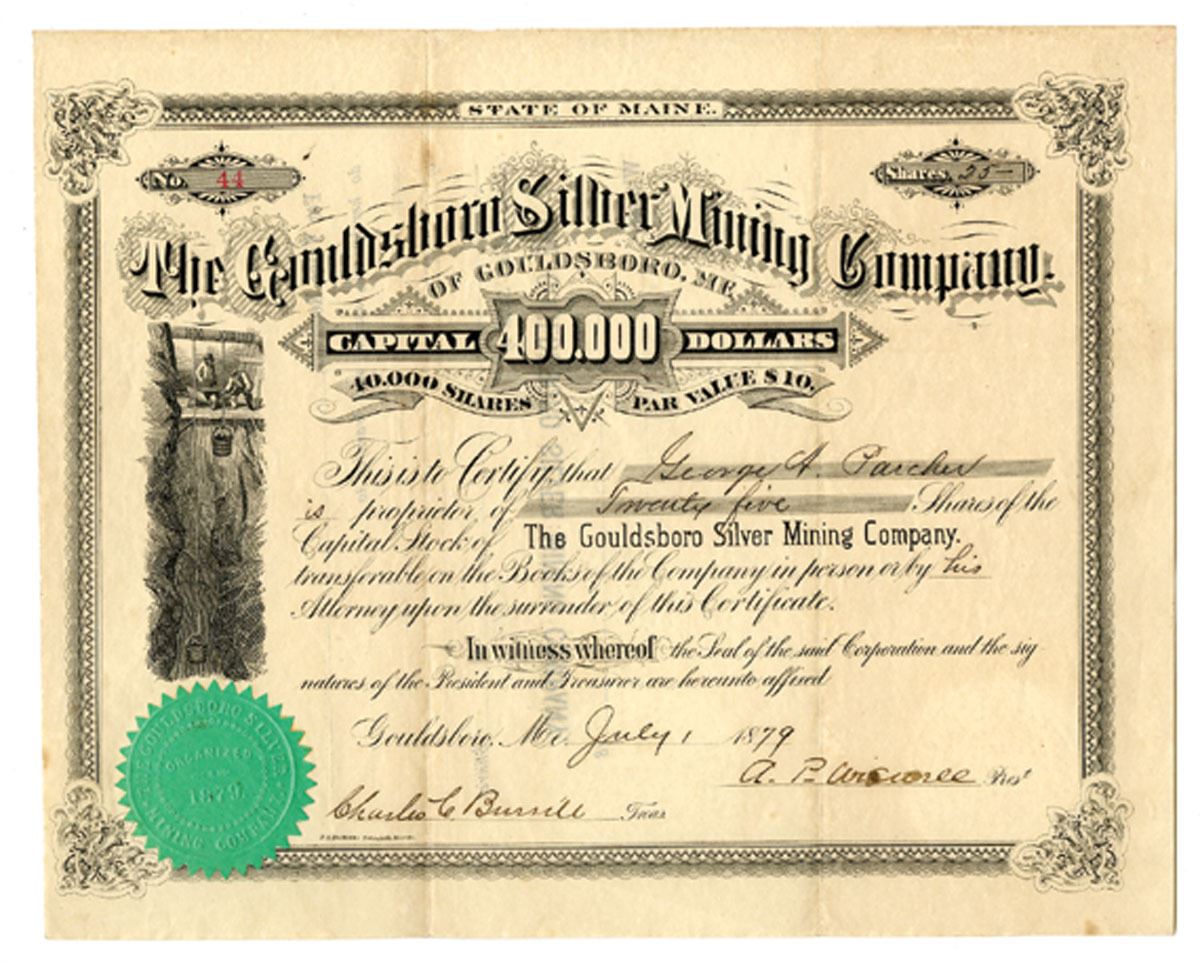 STATE OF MAINE.
No. 44
Shares. 25—
The Gouldsboro Silver Mining Company.
OF GOULDSBORO, ME.
CAPITAL 400.000 DOLLARS
40.000 SHARES PAR VALUE $10.
This is to Certify, that George A. Parcher
is proprietor of Twenty five Shares of the
Capital Stock of The Gouldsboro Silver Mining Company.
transferable on the Books of the Company in person or by his
Attorney upon the surrender of this Certificate.
In witness whereof the Seal of the said Corporation and the sig
natures of the President and Treasurer are hereunto affixed
Gouldsboro, Me. July 1 1879
A. P. Wiswell Prest
Charles C Burrill Treas
THE GOULDSBORO SILVER
MINING COMPANY
ORGANIZED
1879